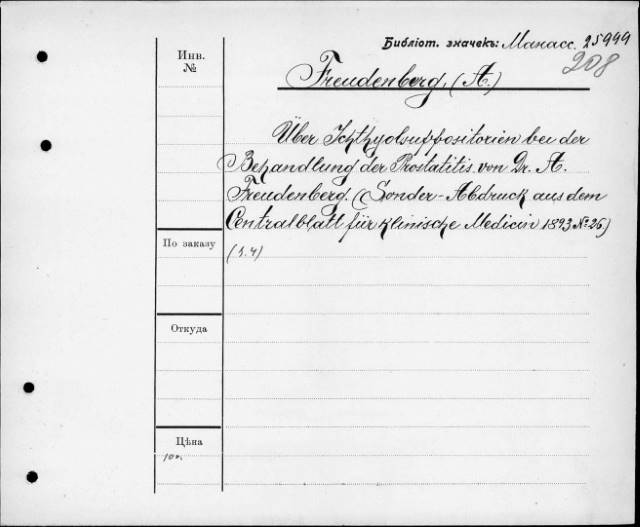 Библіот. значекъ: Манасс. 25999
208
Инв.
№
Freudenberg, (A.)
Über Ichthyolsuppositorien bei der
Behandlung der Prostatitis von Dr. A.
Freudenberg. (Sonder-Abdruck aus dem
Centralblatt für klinische Medicin 1893 № 26.)
По заказу
(s. 4)
Откуда
Цѣна
10к.